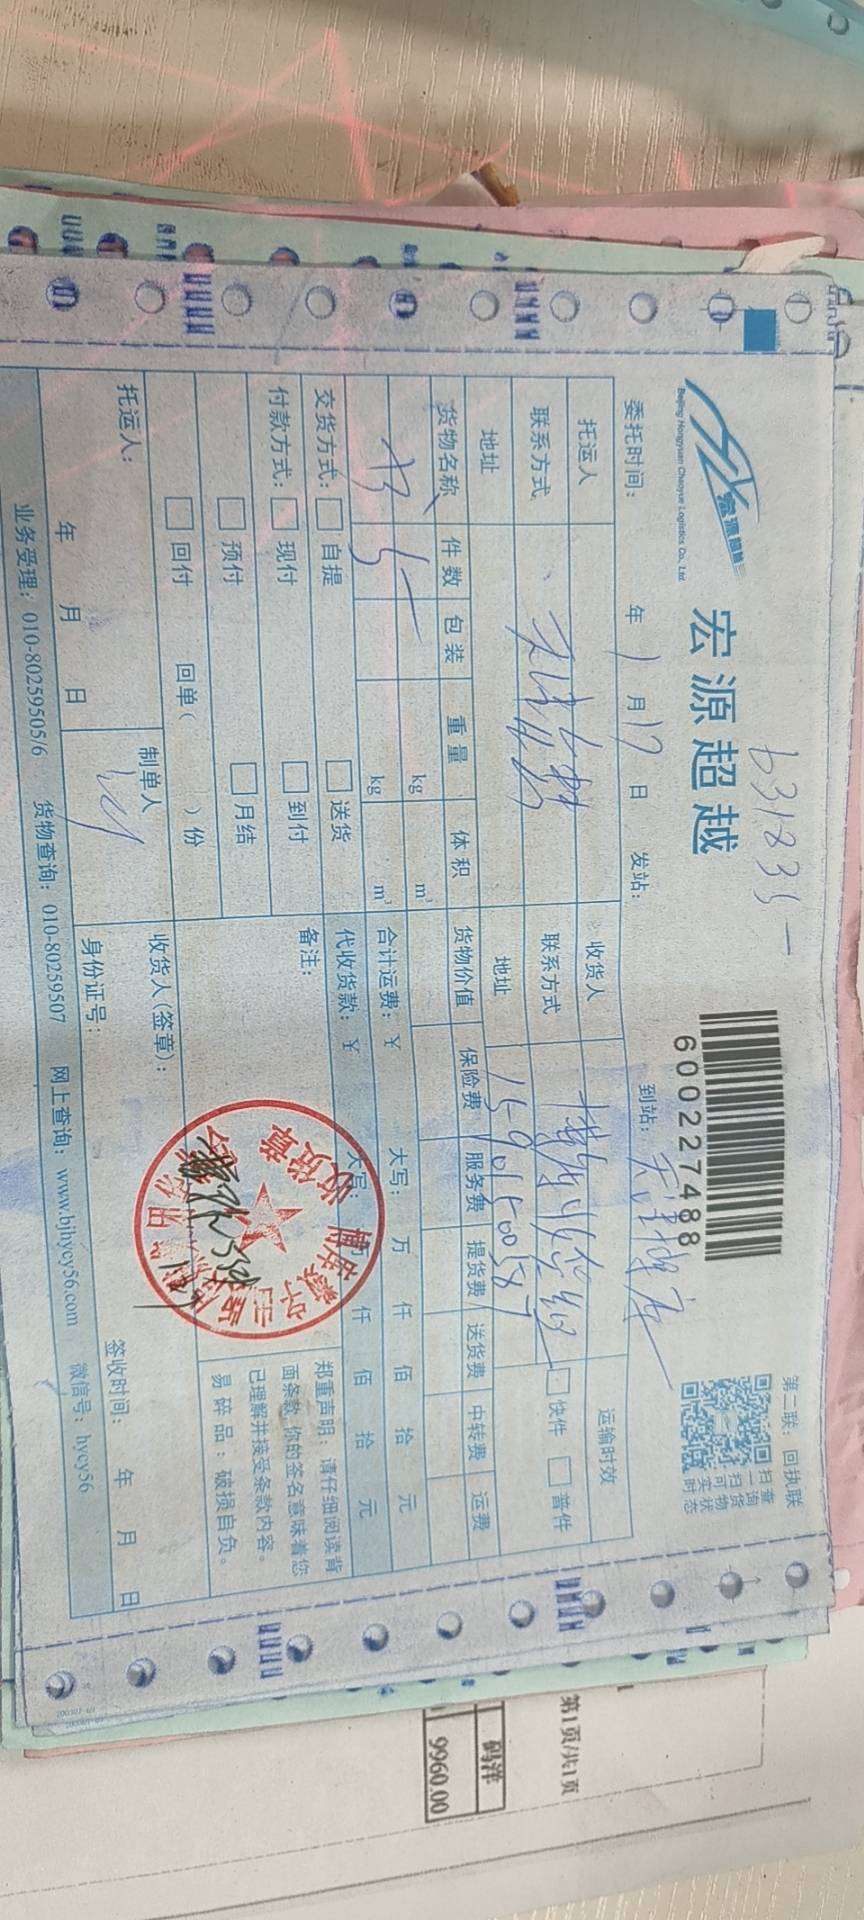 631835-
第二联：回执联
宏源超越
Beijing Hongyuan Chaoyue Logistics Co., Ltd
宏源超越
600227488
扫一扫
查询货物实时状态
委托时间： 年 1 月 17 日 发站： 到站：
托运人 收货人 运输时效
联系方式 联系方式 快件 普件
地址 地址
货物名称 件数 包装 重量 体积 货物价值 保险费 服务费 提货费 送货费 中转费 运费
kg m³
书 kg m³ 合计运费：¥ 大写： 万 仟 佰 拾 元
交货方式： 自提 送货 代收货款：¥ 大写： 万 仟 佰 拾 元
付款方式： 现付 到付 备注：
预付 月结
回付 回单（ ）份
郑重声明：请仔细阅读背
面条款，你的签名意味着您
已理解并接受条款内容。
易碎品：破损自负。
托运人： 制单人 收货人(签章)：
年 月 日 身份证号： 签收时间： 年 月 日
收货章
业务受理：010-80259505/6 货物查询：010-80259507 网上查询：www.bjhycy56.com 微信号：hycy56
第1页/共1页
码洋
9960.00